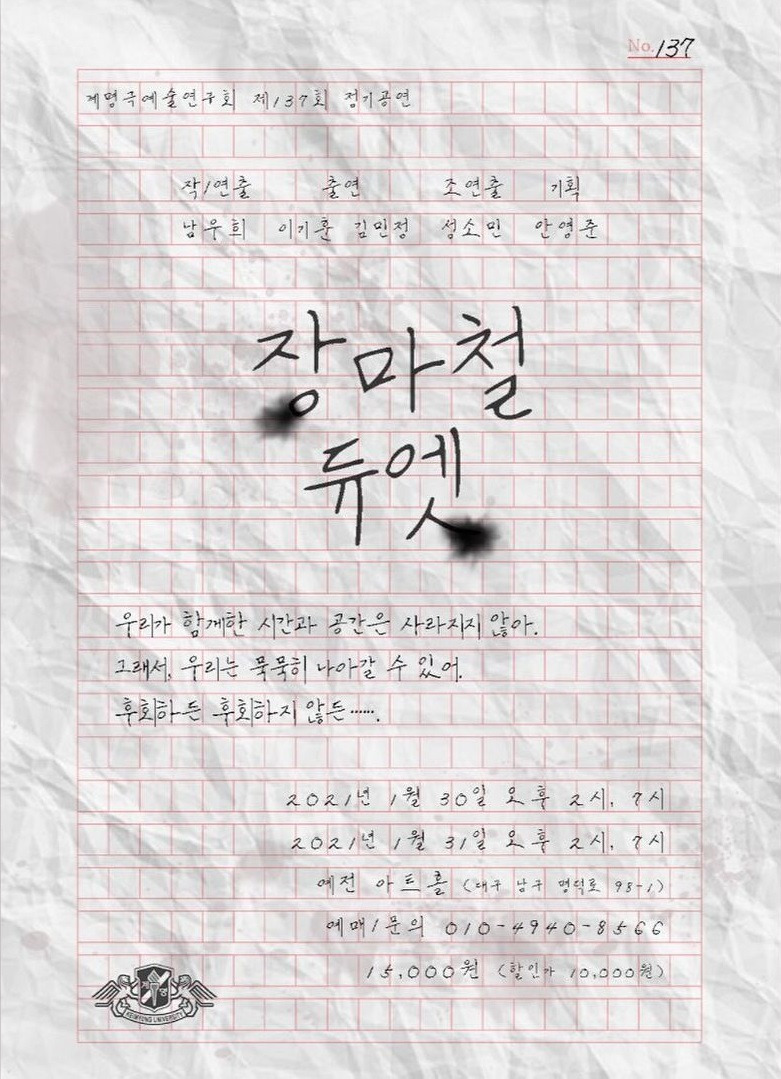 No. 137
계명극예술연구회 제137회 정기공연
작/연출 출연 조연출 기획
남우희 이기훈 김민정 성소민 안영준
장마철
듀엣
우리가 함께한 시간과 공간은 사라지지 않아.
그래서, 우리는 묵묵히 나아갈 수 있어.
후회하든 후회하지 않든……
2021년 1월 30일 오후 2시, 7시
2021년 1월 31일 오후 2시, 7시
예전 아트홀 (대구 남구 명덕로 98-1)
예매/문의 010-4940-8566
15,000원 (할인가 10,000원)
계명
KEIMYUNG UNIVERSITY